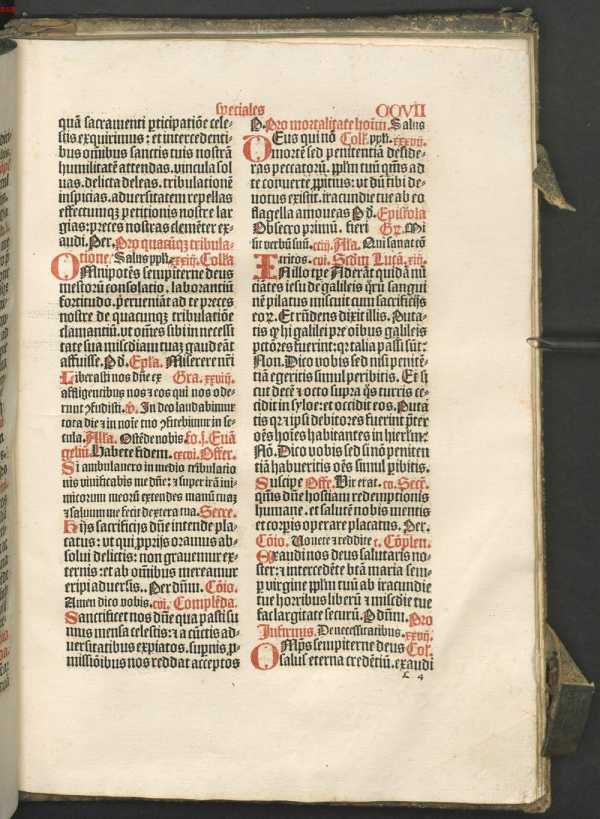 speciales
CCVII
quā sacramenti ꝑticipatiōe cele-
stis exquirimus: et intercedenti-
bus om̄ibus sanctis tuis nostrā
humilitatē attendas. vincula sol
uas. delicta deleas. tribulationē
inspicias. aduersitatem repellas
effectumqȝ petitionis nostre lar
gias: preces nostras clemēter ex-
audi. Per. Pro quacūqȝ tribula-
tione. Salus ppłi. Collcā
OMnipotēs sempiterne deus
mestorū consolatio. laborantiū
fortitudo. ꝑueniāt ad te preces
nostre de quacunqȝ tribulatiōe
clamantiū. vt om̄es sibi in necessi
tate sua misc̄diam tuaȝ gaudeāt
affuisse. P̄ d. Ep̄la. Miserere nr̄i
Liberasti nos dn̄e ex Gra.
affligentibus nos ⁊ eos qui nos ode-
runt ꝯfudisti. v̄. In deo laudabimur
tota die ⁊ in noīe tuo ꝯfitebimur in se-
cula. Alła. Ostēde nobis. Euā
geliū. Habete fidem. Offer.
Si ambulauero in medio tribulatio
nis viuificabis me dn̄e: ⁊ super irā ini-
micorum meorū extendes manū tuaȝ
⁊ saluum me fecit dextera tua. Secre.
Hijs sacrificijs dn̄e intende pla-
catus: vt qui ꝓprijs oramus ab-
solui delictis: non grauemur ex-
ternis: et ab om̄ibus mereamur
eripi aduersis.. Per dn̄m. Cōio.
Amen dico vobis. Complēda.
Sanctificet nos dn̄e qua pasti su
mus mensa celestis: ⁊ a cūctis ad-
uersitatibus expiatos. supnis ꝓ-
missiōibus nos reddat acceptos
P. Pro mortalitate hoīm. Salus
DEus qui nō Coll. ppłi.
mortē sed penitentiā deside-
ras peccatorū. ppłm tuū qn̄s ad
te conuerte ꝓpitius: vt dū tibi de-
uotus existit. iracundie tue ab eo
flagella amoueas P̄ d. Epistola
Obsecro primū. fieri Gr̄. Mi
sit verbū suū. Alła. Qui sanat cō
tritos. Scdm̄ Lucā.
IN illo tp̄e Aderāt quidā nū
ciātes iesu de galileis qr̄ū sangui
nē pilatus miscuit cum sacrificijs
eoꝝ. Et rn̄dens dixit illis. Puta-
tis ꝙ hi galilei pre oibus galileis
pctōres fuerint: qꝛ talia passi sūt:
Non. Dico vobis sed nisi penitē-
tiā egeritis simul peribitis. Et si
cut decē ⁊ octo supra qs turris ce-
cidit in syloe: et occidit eos. Puta
tis qꝛ ⁊ ipsi debitores fuerint p̄ter
oēs hoīes habitantes in hierłm:
Nō. Dico vobis sed si nō peniten
tiā habueritis oēs simul ꝑibitis.
Suscipe Offe. Vir erat. Secr̄.
qn̄s dn̄e hostiam redemptionis
humane. et salutē nobis mentis
et corꝑis operare placatus. Per.
Cōio. Vouete ⁊ reddite Cōplen.
Exaudi nos deus salutaris no-
ster: ⁊ intercedēte btā maria sem-
ꝑ virgine ppłm tuū ab iracundie
tue hoꝛꝛibus liberū ⁊ misc̄die tue
fac largitate securū. P̄ dn̄m. Pro
Infirmis. De necessitatibus.
OMp̄s sempiterne deus Col.
salus eterna credētiū. exaudi